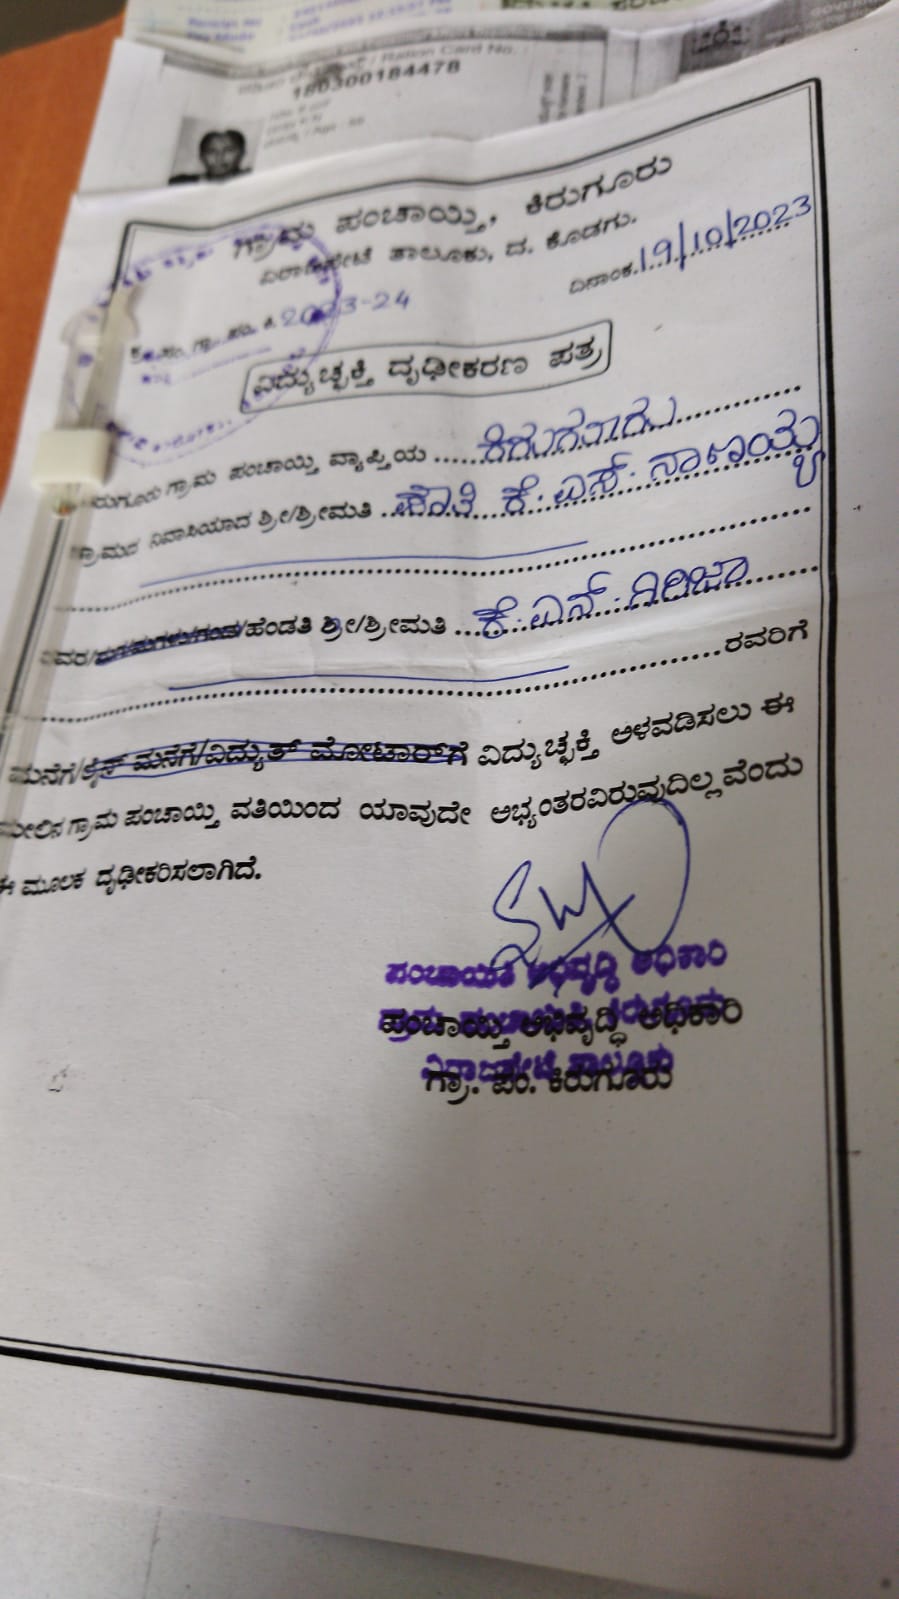 Ration Card No.
180300184478
ಗ್ರಾಮ ಪಂಚಾಯ್ತಿ, ಕಿರುಗೂರು
ವಿರಾಜಪೇಟೆ ತಾಲೂಕು, ದ. ಕೊಡಗು.
ದಿನಾಂಕ.19/10/2023
ಗ್ರಾ. ಪಂ. ಕಿ. 2023-24
ವಿದ್ಯುಚ್ಛಕ್ತಿ ದೃಢೀಕರಣ ಪತ್ರ
ಕಿರುಗೂರು ಗ್ರಾಮ ಪಂಚಾಯ್ತಿ ವ್ಯಾಪ್ತಿಯ
ಗ್ರಾಮದ ನಿವಾಸಿಯಾದ ಶ್ರೀ/ಶ್ರೀಮತಿ ಕೆ. ಎಸ್. ನಾಣಯ್ಯ
ರವರ/ಮಗ/ಮಗಳು/ಗಂಡ/ಹೆಂಡತಿ ಶ್ರೀ/ಶ್ರೀಮತಿ ಕೆ. ಎನ್. ಗಿರಿಜಾ
ರವರಿಗೆ
ಮನೆಗೆ/ಲೈನ್ ಮನೆಗೆ/ವಿದ್ಯುತ್ ಮೋಟಾರ್‌ಗೆ ವಿದ್ಯುಚ್ಛಕ್ತಿ ಅಳವಡಿಸಲು ಈ
ಮೇಲಿನ ಗ್ರಾಮ ಪಂಚಾಯ್ತಿ ವತಿಯಿಂದ ಯಾವುದೇ ಅಭ್ಯಂತರವಿರುವುದಿಲ್ಲವೆಂದು
ಈ ಮೂಲಕ ದೃಢೀಕರಿಸಲಾಗಿದೆ.
ಪಂಚಾಯತಿ ಅಭಿವೃದ್ಧಿ ಅಧಿಕಾರಿ
ಪಂಚಾಯ್ತಿ ಅಭಿವೃದ್ಧಿ ಅಧಿಕಾರಿ
ವಿರಾಜಪೇಟೆ ತಾಲ್ಲೂಕು
ಗ್ರಾ. ಪಂ. ಕಿರುಗೂರು